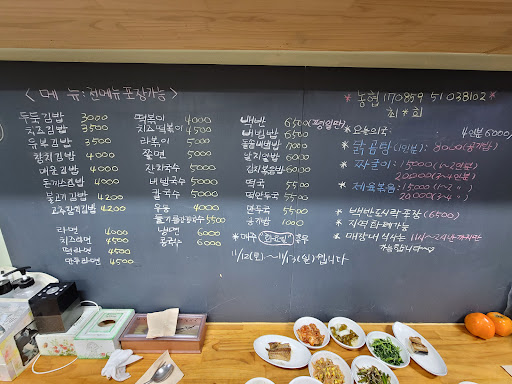 < 메 뉴 : 전메뉴 포장가능 >
두툭김밥 3000
치즈김밥 3500
유부김밥 3500
참치김밥 4000
매운김밥 4000
돈까스김밥 4000
불고기김밥 4200
고추참치김밥 4200
라면 4000
치즈라면 4500
떡라면 4500
만두라면 4500
떡볶이 4000
치즈떡볶이 4500
라볶이 5000
쫄면 5000
잔치국수 5000
비빔국수 5000
칼국수 5000
우동 4000
들기름막국수 5500
냉면 6000
콩국수 6000
백반 6500(평일만)
비빔밥 6500
돌솥비빔밥 7000
알치알밥 6000
김치볶음밥 6000
떡국 5500
떡만두국 5500
만두국 5500
공기밥 1000
* 매주 화요일 휴무
11/12(토)~11/13(일) 쉽니다
* 농협 170859 51 038102 *
최*희
* 오색미역국: 4인분 6000
* 닭곰탕(1인분): 8000(공기밥)
* 짜글이: 15000(1~2인분)
20000(3~4인분)
* 제육볶음: 15000(1~2 〃)
20000(3~4 〃)
* 백반도시락 포장 (6500)
* 지역화폐가능
* 매장내 식사는 11시~2시까지만
가능합니다~